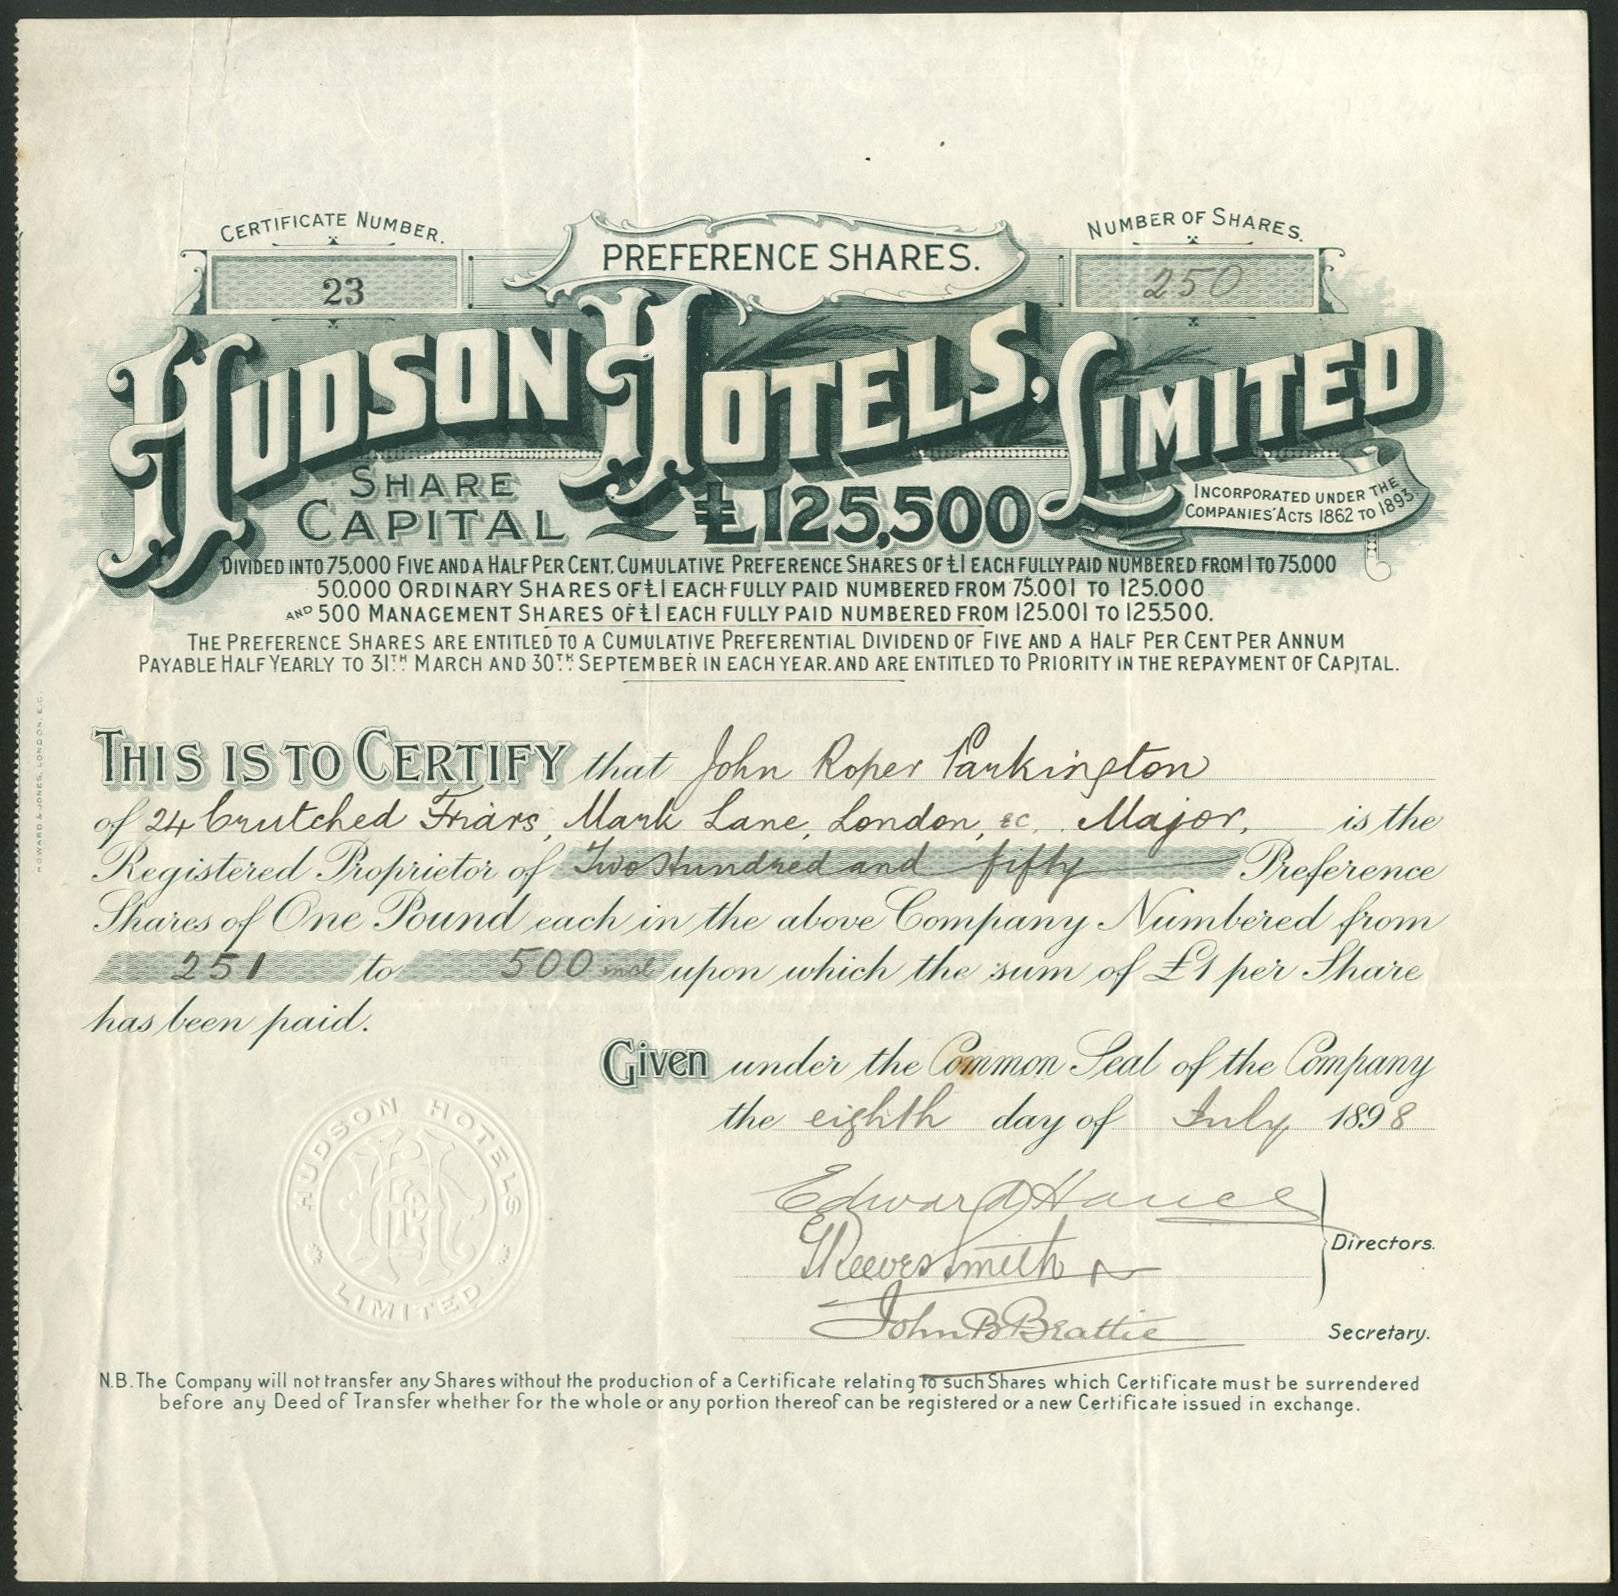 CERTIFICATE NUMBER.
23
PREFERENCE SHARES.
NUMBER OF SHARES.
250
HUDSON HOTELS, LIMITED
SHARE CAPITAL £125,500
INCORPORATED UNDER THE
COMPANIES' ACTS 1862 TO 1893.
DIVIDED INTO 75.000 FIVE AND A HALF PER CENT. CUMULATIVE PREFERENCE SHARES OF £1 EACH FULLY PAID NUMBERED FROM 1 TO 75.000
50.000 ORDINARY SHARES OF £1 EACH FULLY PAID NUMBERED FROM 75.001 TO 125.000
AND 500 MANAGEMENT SHARES OF £1 EACH FULLY PAID NUMBERED FROM 125.001 TO 125.500.
THE PREFERENCE SHARES ARE ENTITLED TO A CUMULATIVE PREFERENTIAL DIVIDEND OF FIVE AND A HALF PER CENT PER ANNUM
PAYABLE HALF YEARLY TO 31TH MARCH AND 30TH SEPTEMBER IN EACH YEAR. AND ARE ENTITLED TO PRIORITY IN THE REPAYMENT OF CAPITAL.
THIS IS TO CERTIFY that John Roper Parkington
of 24 Crutched Friars, Mark Lane, London, EC. Major, is the
Registered Proprietor of Two Hundred and fifty Preference
Shares of One Pound each in the above Company Numbered from
251 to 500 incl upon which the sum of £1 per Share
has been paid.
Given under the Common Seal of the Company
the eighth day of July 1898
Edward Hance
Reeves Smith
Directors.
John B Beattie
Secretary.
HUDSON HOTELS
LIMITED
N.B. The Company will not transfer any Shares without the production of a Certificate relating to such Shares which Certificate must be surrendered
before any Deed of Transfer whether for the whole or any portion thereof can be registered or a new Certificate issued in exchange.
HOWARD & JONES, LONDON, E.C.